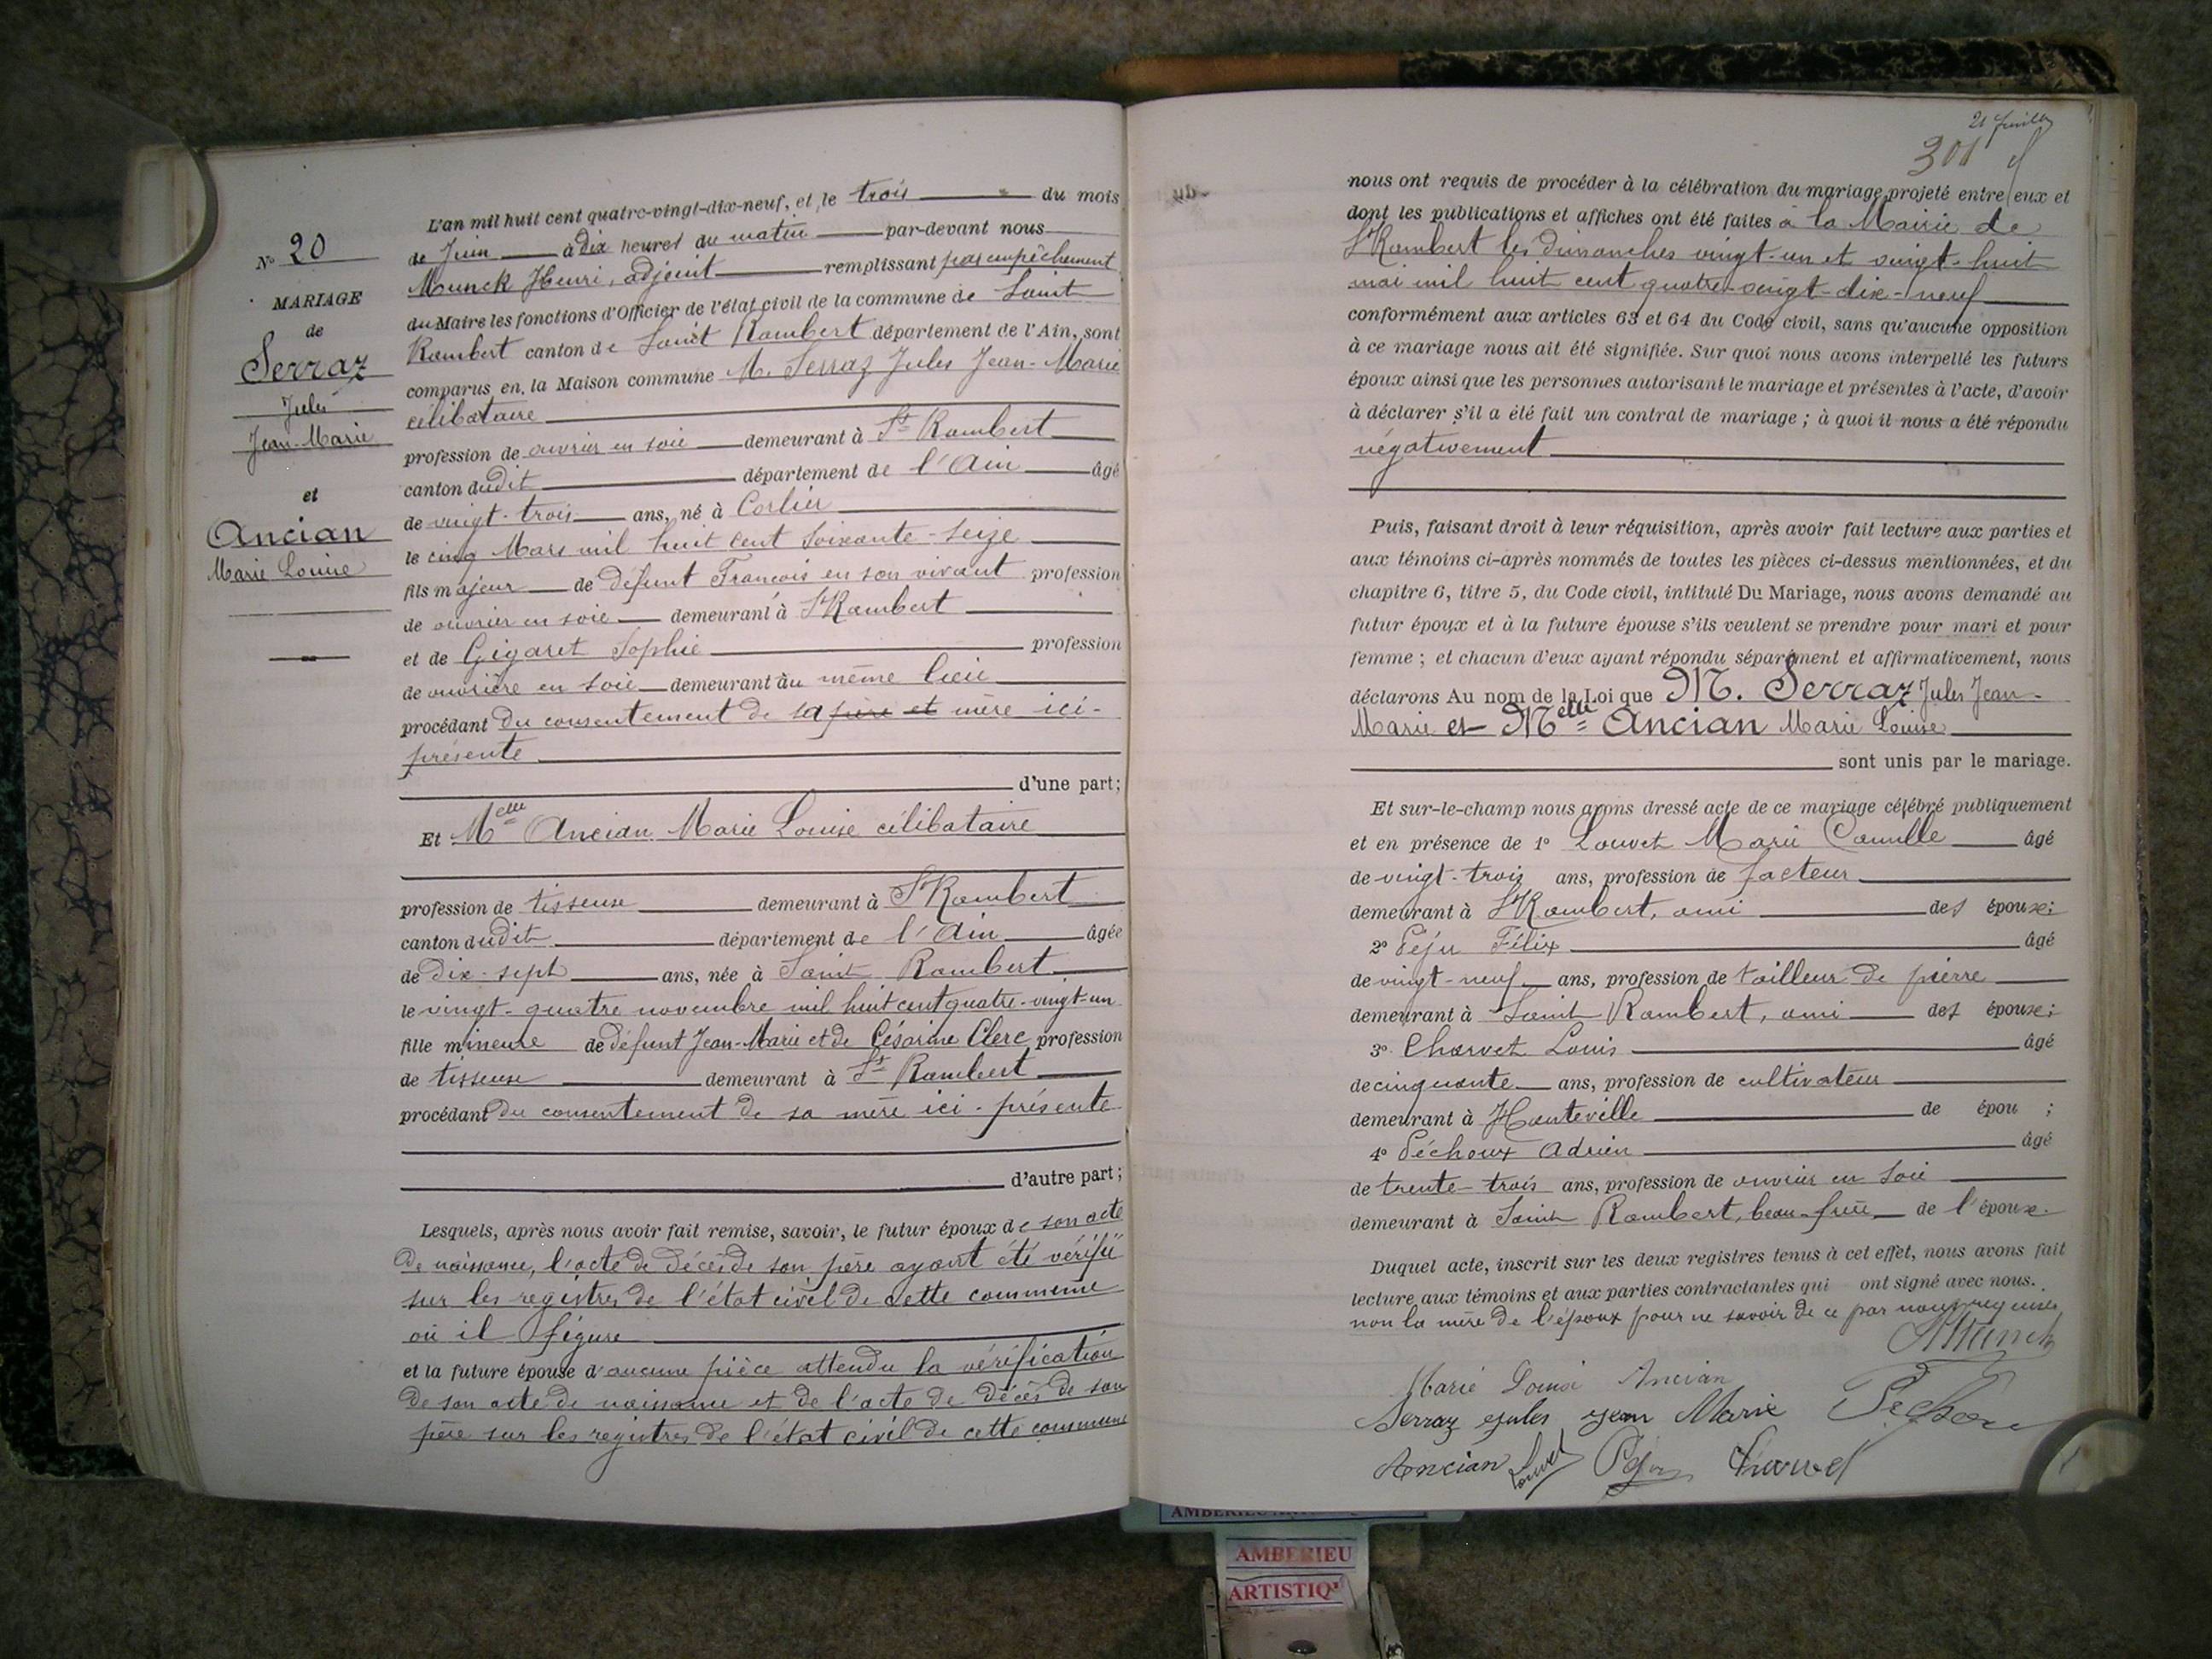 N° 20
MARIAGE
de
Serraz
Jules
Jean-Marie
et
Ancian
Marie Louise
L'an mil huit cent quatre-vingt-dix-neuf, et le trois du mois
de Juin à dix heures du matin par-devant nous
Munck Henri, adjoint remplissant par empêchement
du Maire les fonctions d'Officier de l'état civil de la commune de Saint
Rambert canton de Saint Rambert département de l'Ain, sont
comparus en la Maison commune M. Serraz Jules Jean-Marie
célibataire
profession de ouvrier en soie demeurant à St Rambert
canton dudit département de l'Ain âgé
de vingt-trois ans, né à Corlier
le cinq Mars mil huit cent soixante-seize
fils majeur de défunt François en son vivant profession
de ouvrier en soie demeurant à St Rambert
et de Gigaret Sophie profession
de ouvrière en soie demeurant au même lieu
procédant du consentement de sa père et mère ici-
présente
d'une part;
Et Melle Ancian Marie Louise célibataire
profession de tisseuse demeurant à St Rambert
canton dudit département de l'Ain âgée
de dix-sept ans, née à Saint Rambert
le vingt-quatre novembre mil huit cent quatre-vingt-un
fille mineure de défunt Jean-Marie et de Césarine Clerc profession
de tisseuse demeurant à St Rambert
procédant du consentement de sa mère ici-présente
d'autre part;
Lesquels, après nous avoir fait remise, savoir, le futur époux de son acte
de naissance, l'acte de décès de son père ayant été vérifié
sur les registres de l'état civil de cette commune
où il figure
et la future épouse d'aucune pièce attendu la vérification
de son acte de naissance et de l'acte de décès de son
père sur les registres de l'état civil de cette commune
21 feuillet
301
nous ont requis de procéder à la célébration du mariage projeté entre eux et
dont les publications et affiches ont été faites à la Mairie de
St Rambert les dimanches vingt-un et vingt-huit
mai mil huit cent quatre-vingt-dix-neuf
conformément aux articles 63 et 64 du Code civil, sans qu'aucune opposition
à ce mariage nous ait été signifiée. Sur quoi nous avons interpellé les futurs
époux ainsi que les personnes autorisant le mariage et présentes à l'acte, d'avoir
à déclarer s'il a été fait un contrat de mariage ; à quoi il nous a été répondu
négativement
Puis, faisant droit à leur réquisition, après avoir fait lecture aux parties et
aux témoins ci-après nommés de toutes les pièces ci-dessus mentionnées, et du
chapitre 6, titre 5, du Code civil, intitulé Du Mariage, nous avons demandé au
futur époux et à la future épouse s'ils veulent se prendre pour mari et pour
femme ; et chacun d'eux ayant répondu séparément et affirmativement, nous
déclarons Au nom de la Loi que M. Serraz Jules Jean-
Marie et Melle Ancian Marie Louise
sont unis par le mariage.
Et sur-le-champ nous avons dressé acte de ce mariage célébré publiquement
et en présence de 1° Louvet Marie Camille âgé
de vingt-trois ans, profession de facteur
demeurant à St Rambert, ami des époux;
2° Péju Félix âgé
de vingt-neuf ans, profession de tailleur de pierre
demeurant à Saint Rambert, ami des époux;
3° Charvet Louis âgé
de cinquante ans, profession de cultivateur
demeurant à Hauteville de épou ;
4° Péchoux Adrien âgé
de trente-trois ans, profession de ouvrier en soie
demeurant à Saint Rambert, beau-frère de l'époux.
Duquel acte, inscrit sur les deux registres tenus à cet effet, nous avons fait
lecture aux témoins et aux parties contractantes qui ont signé avec nous.
non la mère de l'époux pour ne savoir de ce par nous requise
HMunck
Marie Louise Ancian
Serraz Jules Jean Marie Pechoux
Ancian Louvet Péju Charvet
AMBERIEU
ARTISTIQ